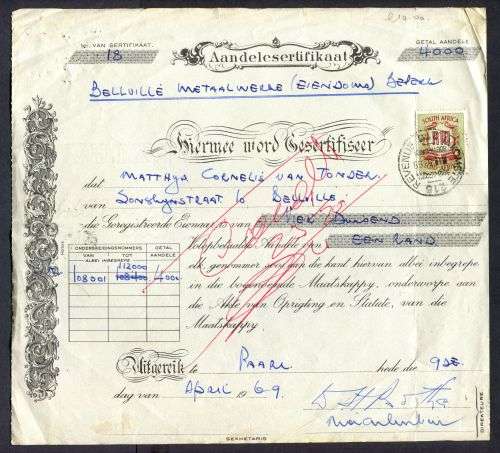 No. VAN SERTIFIKAAT.
18
Aandelesertifikaat
GETAL AANDELE
4000
BELLVILLE METAALWERKE (EIENDOMS) BEPERK
SOUTH AFRICA
REVENUE
Hiermee word Gesertifiseer
dat MATTHYS CORNELIS VAN TONDER
van SONSKYNSTRAAT 10 BELLVILLE
die Geregistreerde Eienaar is van VIER DUISEND
Volgestorte Aandele van EEN RAND
elk genommer soos aan die kant hiervan albei inbegrepe
in die bogenoemde Maatskappy, onderworpe aan
die Akte van Oprigting en Statute, van die
Maatskappy
ONDERSKEIDINGSNOMMERS
GETAL
VAN
TOT
AANDELE
ALBEI INBEGREPE
112000
108001
4000
Uitgereik te PAARL hede die 9DE
dag van APRIL 1969
DIREKTEURE
SEKRETARIS